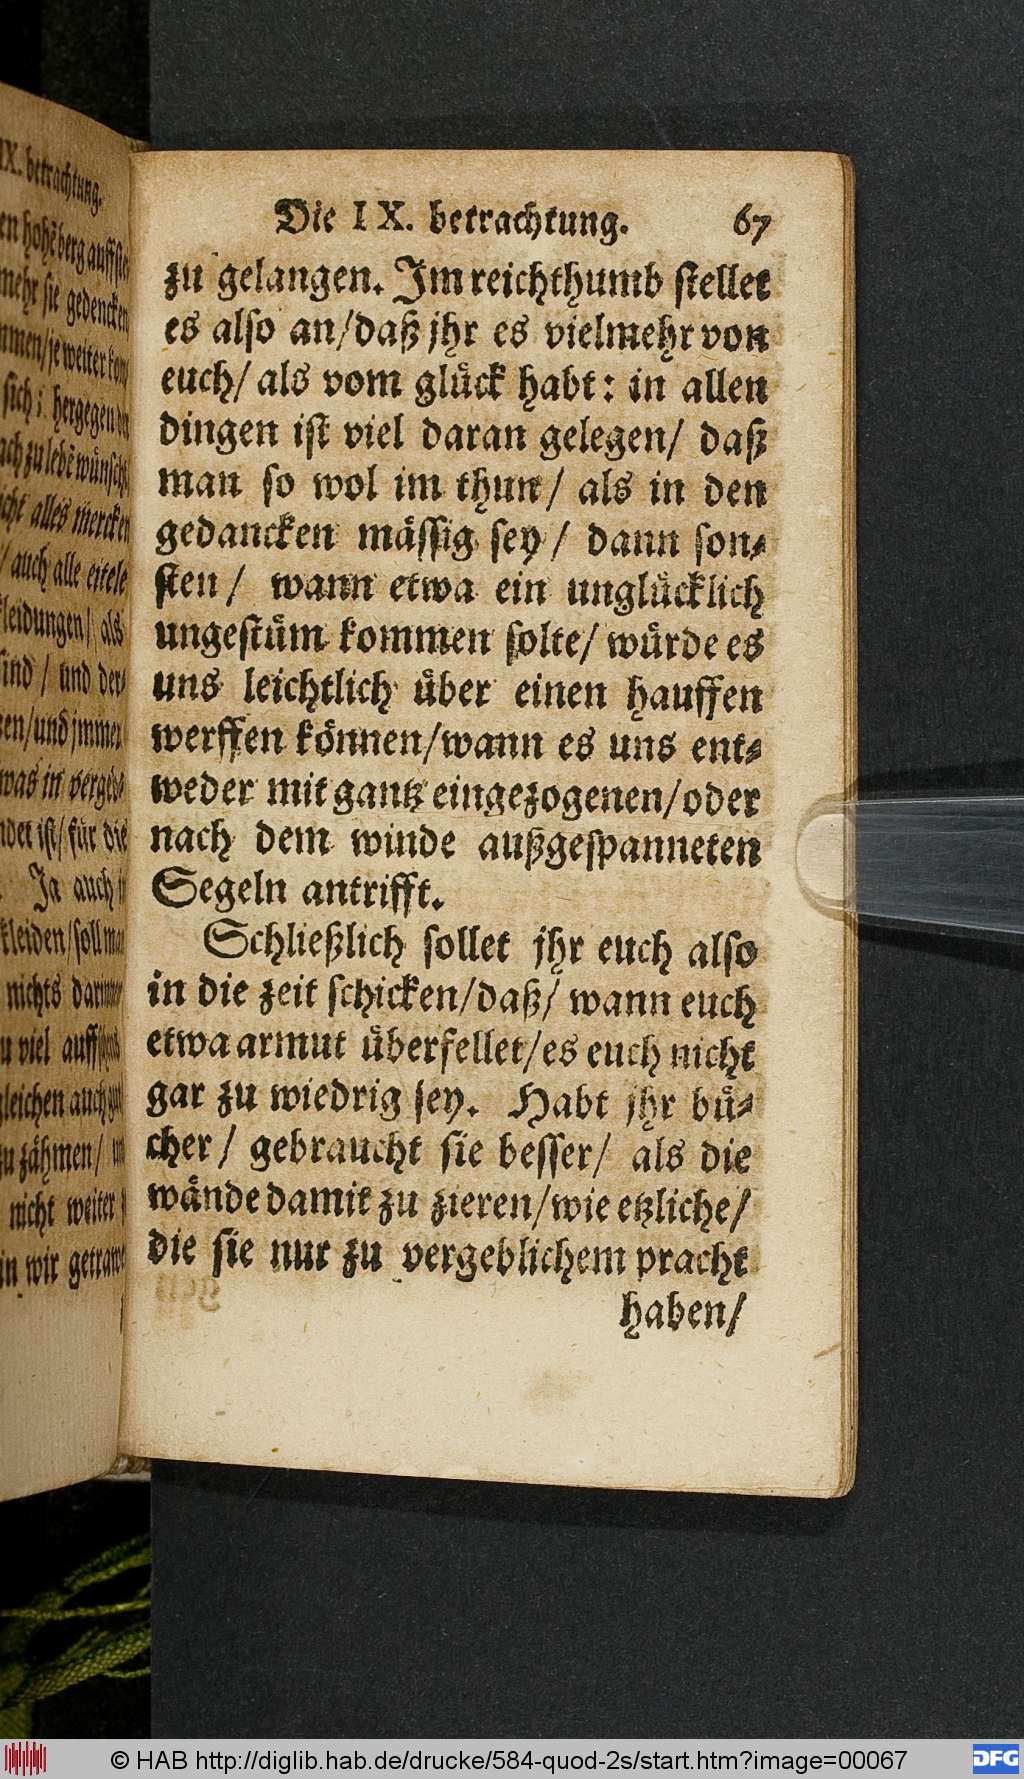 IX. betrachtung.
mehr sie gedencken
sich; hergegen
alles mercken
/ auch alle eitele
kleidungen/ als
sind / und der⸗
/und jmmer
was in vergeb⸗
ist/ für die
Ja auch
kleiden/soll man
nichts
viel
gleichen auch
zu zähmen/
nicht weiter
wir
Die IX. betrachtung. 67
zu gelangen. Im reichthumb stellet
es also an/daß jhr es vielmehr von
euch/ als vom glück habt: in allen
dingen ist viel daran gelegen/ daß
man so wol im thun/ als in den
gedancken mässig sey/ dann son⸗
sten/ wann etwa ein unglücklich
ungestüm kommen solte/ würde es
uns leichtlich über einen hauffen
werffen können/wann es uns ent⸗
weder mit gantz eingezogenen/oder
nach dem winde außgespanneten
Segeln antrifft.
Schließlich sollet jhr euch also
in die zeit schicken/daß/ wann euch
etwa armut überfellet/es euch nicht
gar zu wiedrig sey. Habt jhr bü⸗
cher/ gebraucht sie besser/ als die
wände damit zu zieren/wie etzliche/
die sie nur zu vergeblichem pracht
haben/
© HAB http://diglib.hab.de/drucke/584-quod-2s/start.htm?image=00067
DFG